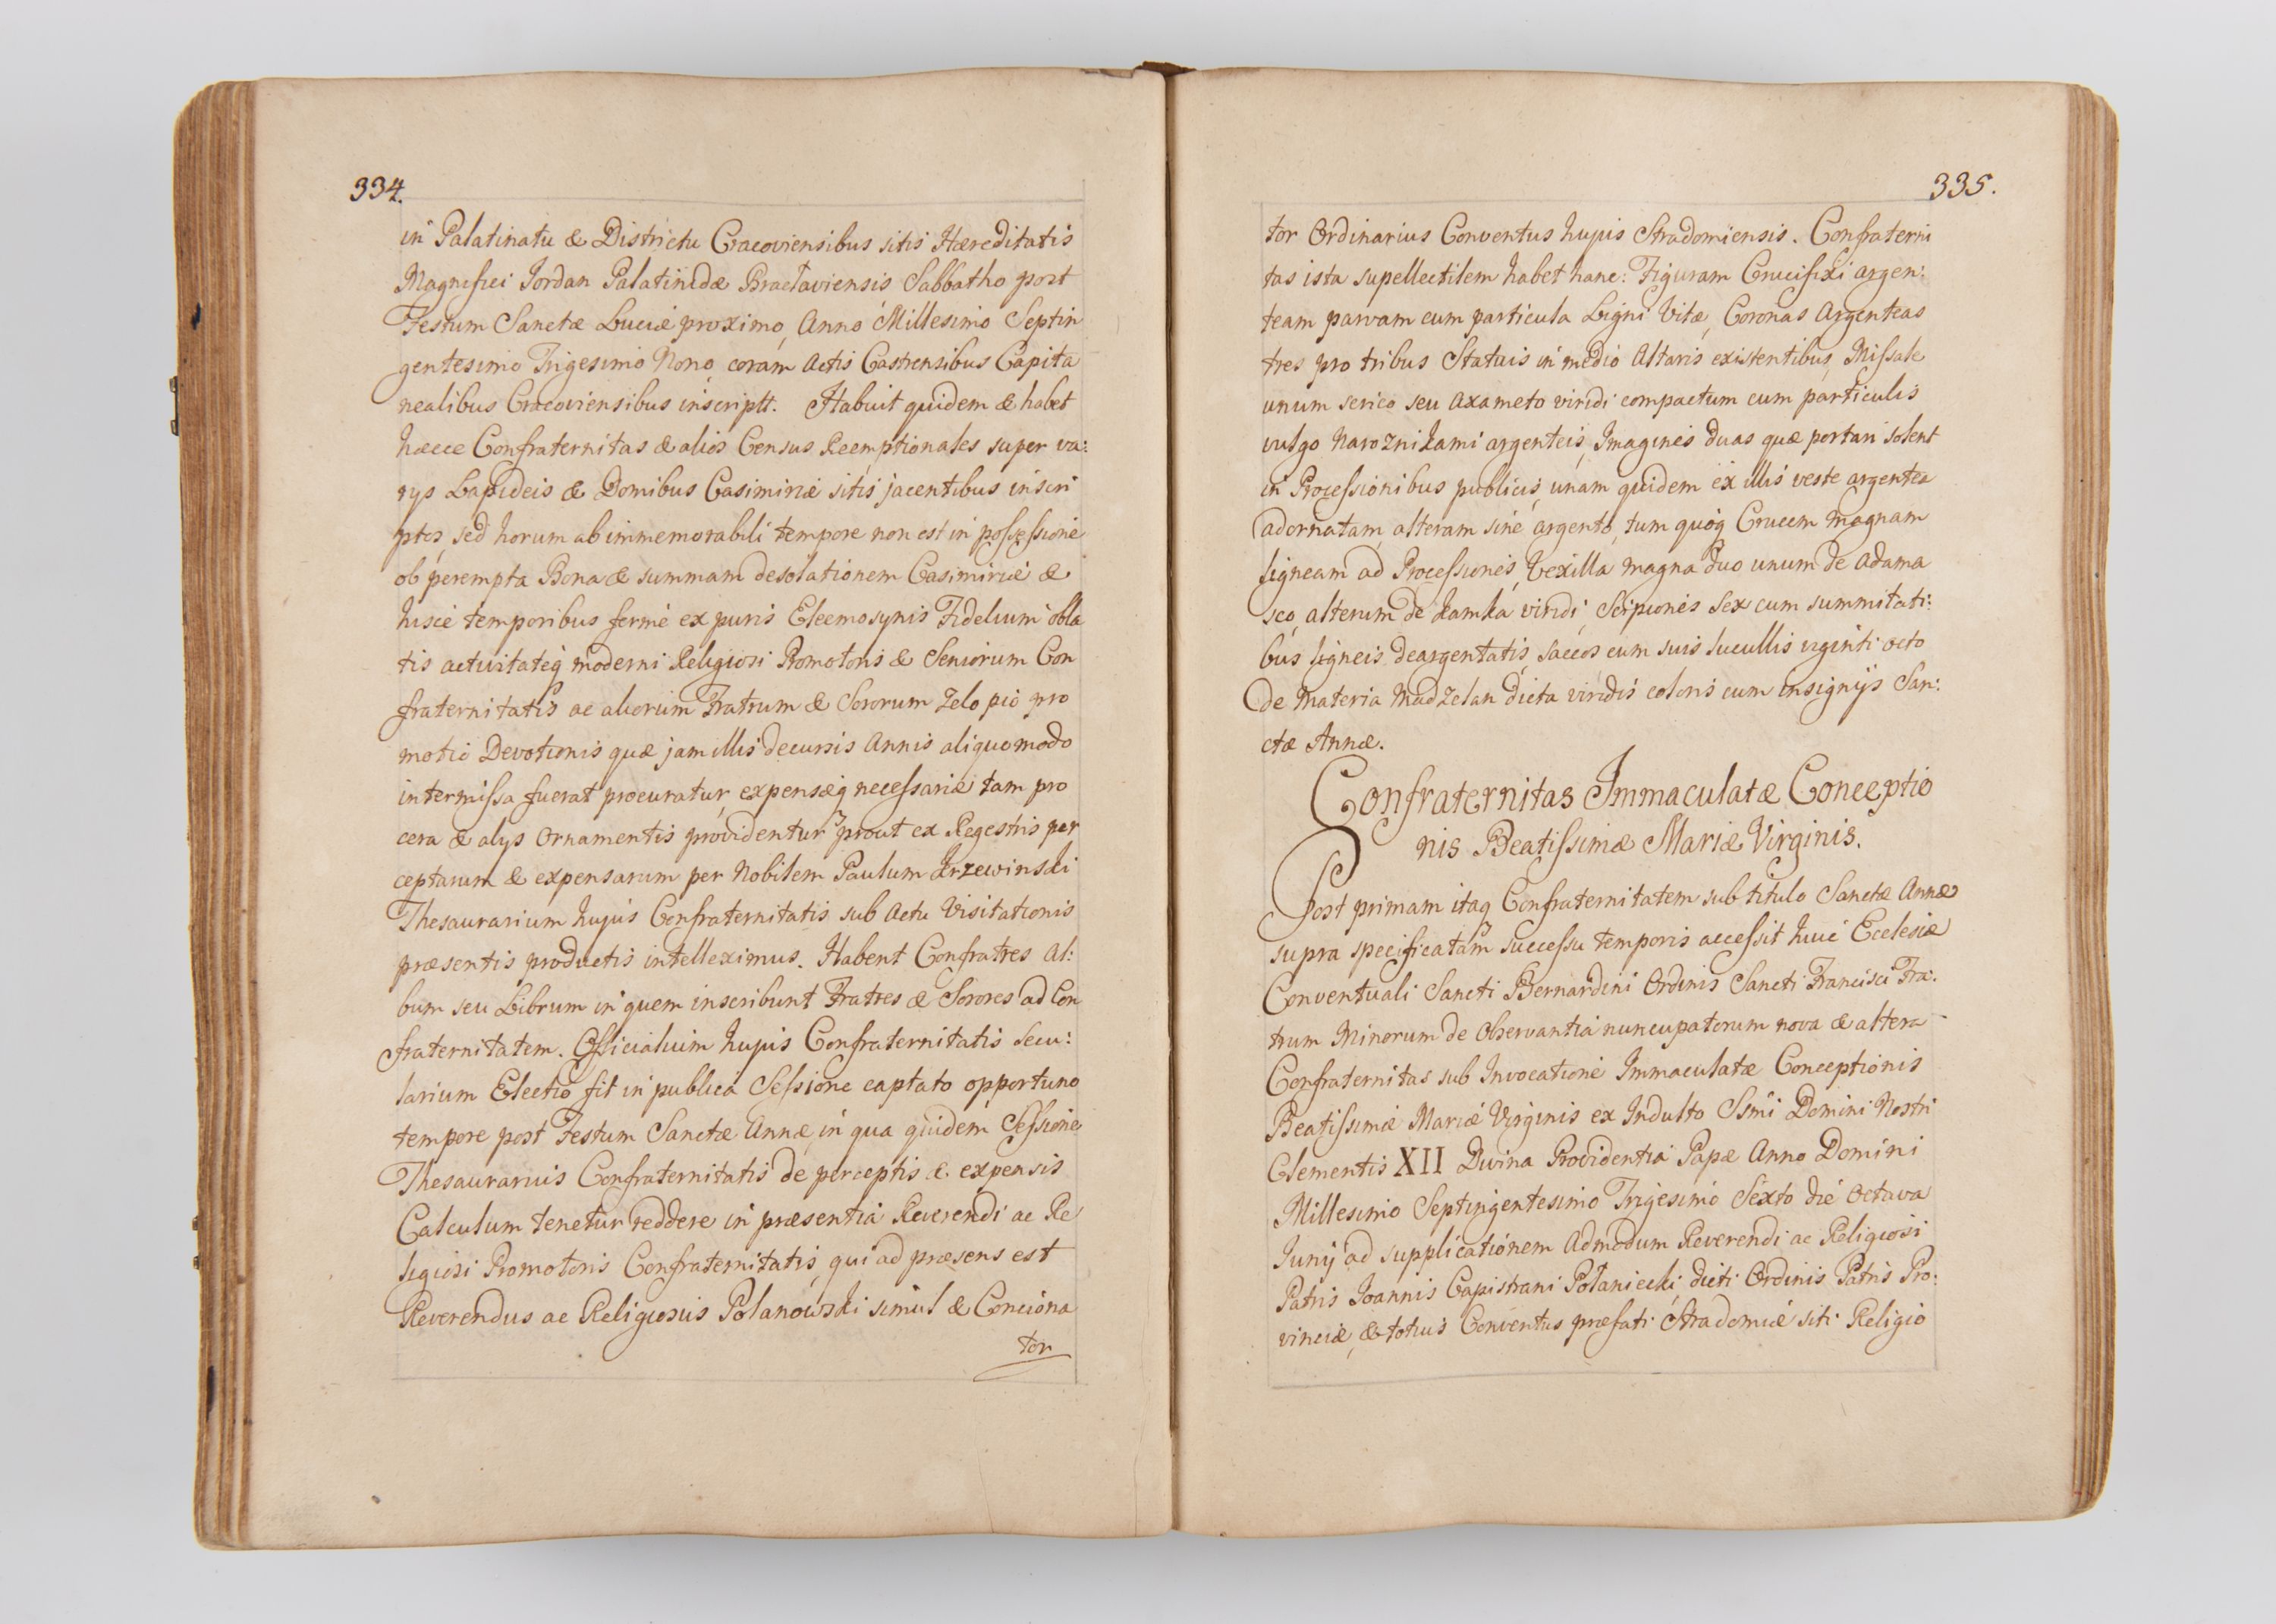 334.
in Palatinatu & Districtu Cracoviensibus sitis Hæreditatis
Magnifici Jordan Palatinidæ Bracłaviensis Sabbatho post
Festum Sanctæ Luciæ proximo, Anno Millesimo Septin
gentesimo Trigesimo Nono coram Actis Castrensibus Capita
nealibus Cracoviensibus inscriptt. Habuit quidem & habet
hæcce Confraternitas & alios Census Reemptionales super va:
rys Lapideis & Domibus Casimiriæ sitis jacentibus inscri
ptos, sed horum ab immemorabili tempore non est in possessione
ob perempta Bona & summam desolationem Casimiriæ &
hisce temporibus fermè ex puris Eleemosynis Fidelium obla
tis activitateq moderni Religiosi Promotoris & Seniorum Con
fraternitatis ac aliorum Fratrum & Sororum zelo pio pro
motio Devotionis quæ jam illis decursis Annis aliquomodo
intermissa fuerat procuratur, expensæq necessariæ tam pro
cera & alys ornamentis providentur prout ex Regestris per
ceptarum & expensarum per Nobilem Paulum Krzewinski
Thesaurarium hujus Confraternitatis sub Actu Visitationis
præsentis productis intelleximus. Habent Confratres Al:
bum seu Librum in quem inscribunt Fratres & Sorores ad Con
fraternitatem. Officialium hujus Confraternitatis Secu:
larium Electio fit in publica Sessione captato opportuno
tempore post Festum Sanctæ Annæ, in qua quidem Sessione
Thesaurarius Confraternitatis de perceptis & expensis
Calculum tenetur reddere in præsentia Reverendi ac Re
ligiosi Promotoris Confraternitatis, qui ad præsens est
Reverendus ac Religiosus Polanowski simul & Conciona
tor
335.
tor Ordinarius Conventus hujus Stradomiensis. Confraterni
tas ista supellectilem habet hanc: Figuram Crucifixi argen:
team parvam cum particula Ligni Vitæ, Coronas Argenteas
tres pro tribus Statuis in medio Altaris existentibus, Missale
unum serico seu Axameto viridi compactum cum particulis
vulgo Naroznikami argenteis, Imagines duas quæ portari solent
in Processionibus publicis, unam quidem ex illis veste argentea
adornatam, alteram sine argento, tum quoq Crucem magnam
ligneam ad Processiones, Vexilla magna duo unum de Adama
sco, alterum de kamka viridi, Scipiones Sex cum summitati:
bus ligneis deargentatis, saccos cum suis lucullis viginti octo
de materia Madzelan dicta viridis coloris cum insignijs San:
ctæ Annæ.
Confraternitas Immaculatæ Conceptio
nis Beatissimæ Mariæ Virginis.
Post primam itaq Confraternitatem sub titulo Sanctæ Annæ
supra specificatam successu temporis accessit huic Ecclesiæ
Conventuali Sancti Bernardini Ordinis Sancti Francisci Fra:
trum Minorum de Observantia nuncupatorum nova & altera
Confraternitas sub Invocatione Immaculatæ Conceptionis
Beatissimæ Mariæ Virginis ex Indulto Ssmi Domini Nostri
Clementis XII Divina Providentia Papæ Anno Domini
Millesimo Septingentesimo Trigesimo Sexto die Octava
Junij ad supplicationem Admodum Reverendi ac Religiosi
Patris Joannis Capistrani Połaniecki, dicti Ordinis Patris Pro:
vinciæ, & totius Conventus præfati Stradomiæ siti Religio